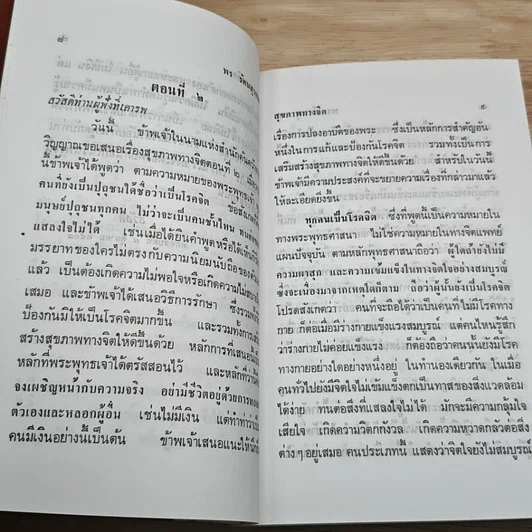 ๘
พร
ตอนที่ ๒
สวัสดีท่านผู้ฟังที่เคารพ
วันนี้ ข้าพเจ้าในนามแห่งสำนักค้นคว้า
วิญญาณขอเสนอเรื่องสุขภาพทางจิตตอนที่ ๒
นี้ข้าพเจ้าได้พูดว่า ตามความหมายของพระพุทธเจ้า
คนที่ยังเป็นปุถุชนได้ชื่อว่าเป็นโรคจิต
มนุษย์ปุถุชนทุกคน ไม่ว่าจะเป็นคนชั้นไหน
แสลงใจไม่ได้ เช่นเมื่อได้ยินคำพูดหรือได้เห็นกิริยา
มรรยาทของใครไม่ตรงกับความนิยมนับถือของตัว
แล้ว เป็นต้องเกิดความไม่พอใจหรือเกิดความไม่สบาย
เสมอ และข้าพเจ้าได้เสนอวิธีการรักษา ซึ่งรวมทั้ง
ป้องกันมิให้เป็นโรคจิตมากขึ้น และรวมทั้งการ
สร้างสุขภาพทางจิตให้ดีขึ้นด้วย หลักการที่เสนอ
หลักที่พระพุทธเจ้าได้ตรัสสอนไว้ และหลักที่ว่า
จงเผชิญหน้ากับความจริง อย่ามีชีวิตอยู่ด้วยการหลอก
ตัวเองและหลอกผู้อื่น เช่นไม่มีเงิน แต่ทำท่าว่า
คนมีเงินอย่างนี้เป็นต้น ข้าพเจ้าเสนอแนะให้
สุขภาพทางจิต
๙
เรื่องการปลงอาบัติของพระ ซึ่งเป็นหลักการสำคัญอัน
หนึ่งในการแก้และป้องกันโรคจิต รวมทั้งเป็นการ
เสริมสร้างสุขภาพทางจิตให้ดีขึ้นด้วย สำหรับในวันนี้
ข้าพเจ้ามีความประสงค์ที่จะขยายความเรื่องที่กล่าวมาแล้ว
ให้ละเอียดยิ่งขึ้น
ทุกคนเป็นโรคจิต ซึ่งที่พูดนี้เป็นความหมายใน
ทางพระพุทธศาสนา ไม่ใช่ความหมายในทางจิตแพทย์
แผนปัจจุบัน ตามหลักพุทธศาสนาถือว่า ผู้ใดถ้ายังไม่มี
ความผาสุก และความเข้มแข็งในทางจิตใจอย่างสมบูรณ์
ซึ่งจะเนื่องมาจากเหตุใดก็ตาม ถือว่าผู้นั้นยังเป็นโรคจิต
โปรดสังเกตว่า คนที่จะถือได้ว่าเป็นคนที่ไม่มีโรคทาง
กายก็ต่อเมื่อร่างกายแข็งแรงสมบูรณ์ แต่คนไหนรู้สึก
ว่าร่างกายไม่ค่อยแข็งแรง ก็ต้องถือว่าคนนั้นยังมีโรค
ทางกายอย่างใดอย่างหนึ่งอยู่ ในทำนองเดียวกัน ในเมื่อ
คนทั่วไปยังมีจิตใจไม่เข้มแข็งตกเป็นทาสของสิ่งแวดล้อม
ได้ง่าย ทนต่อสิ่งที่แสลงใจไม่ได้ มักจะมีความกลุ้มใจ
เสียใจ เกิดความวิตกกังวล เกิดความหวาดกลัวต่อสิ่ง
ต่างๆ อยู่เสมอ คนประเภทนี้ แสดงว่าจิตใจยังไม่สมบูรณ์